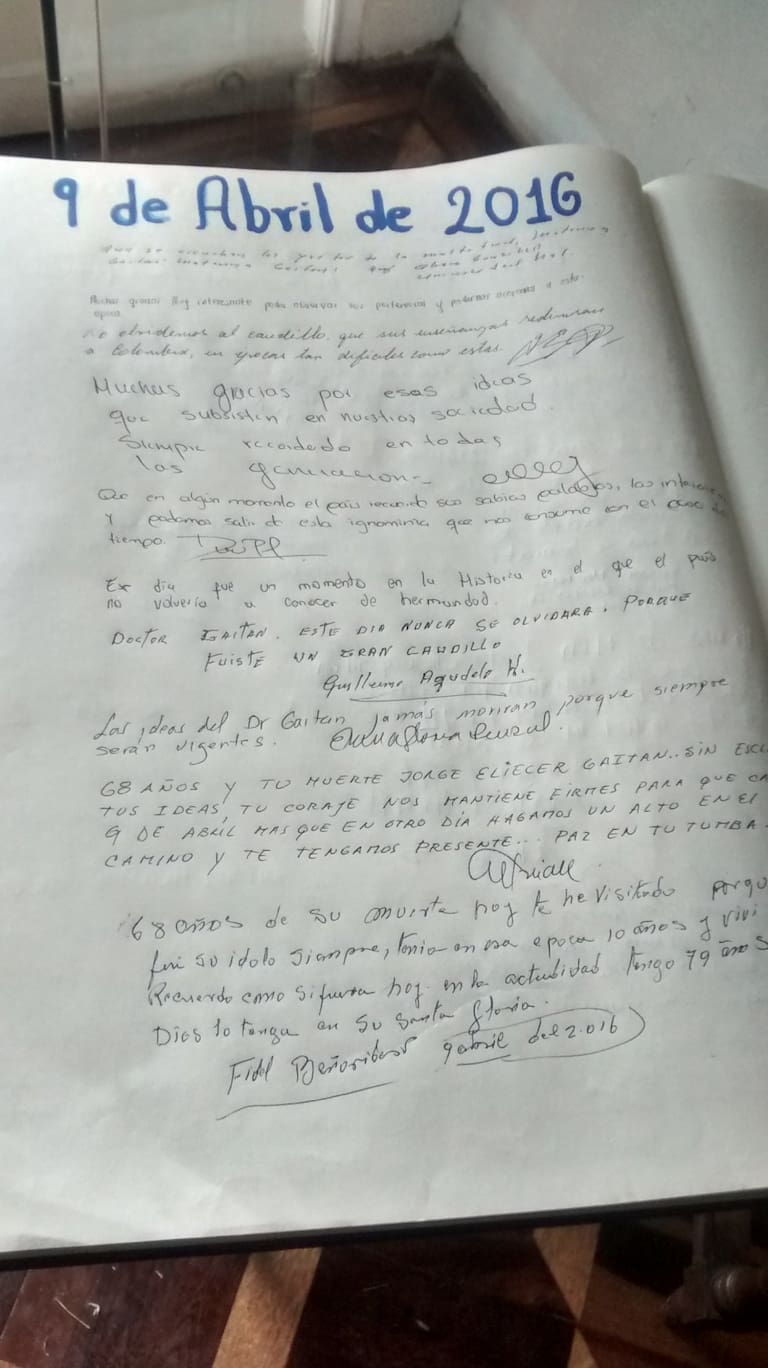 9 de Abril de 2016
Muchas gracias Muy interesante poder observar sus pertenencias y podernos acercarnos a esta
época
no olvidemos al caudillo, que sus enseñanzas redimiran
a Colombia, en epocas tan dificiles como estas.
Muchas gracias por esas ideas
que subsisten en nuestros sociedad.
Siempre recordado en todas
las generacion
Que en algún momento el pais sus sabias palabras, las
y podamos salir de esta ignominia que nos consume con el paso del
tiempo.
Ese día fue un momento en la Historia en el que el país
no volvería a conocer de hermandad.
DOCTOR GAITAN. ESTE DIA NUNCA SE OLVIDARA. PORQUE
FUISTE UN GRAN CAUDILLO
Guillermo Agudelo H.
Las ideas del Dr Gaitan jamás moriran porque siempre
serán vigentes.
68 AÑOS Y TU MUERTE JORGE ELIECER GAITAN.. SIN
TUS IDEAS, TU CORAJE NOS MANTIENE FIRMES PARA QUE
9 DE ABRIL MAS QUE EN OTRO DÍA HAGAMOS UN ALTO EN EL
CAMINO Y TE TENGAMOS PRESENTE... PAZ EN TU TUMBA.
68 años de su muerte hoy te he visitado porqu
fui su idolo siempre, tenia en esa epoca 10 años y vivi
Recuerdo como si fuera hoy. en la actualidad tengo 79 años
Dios lo tenga en su santa Gloria.
Fidel 9 abril del 2.016